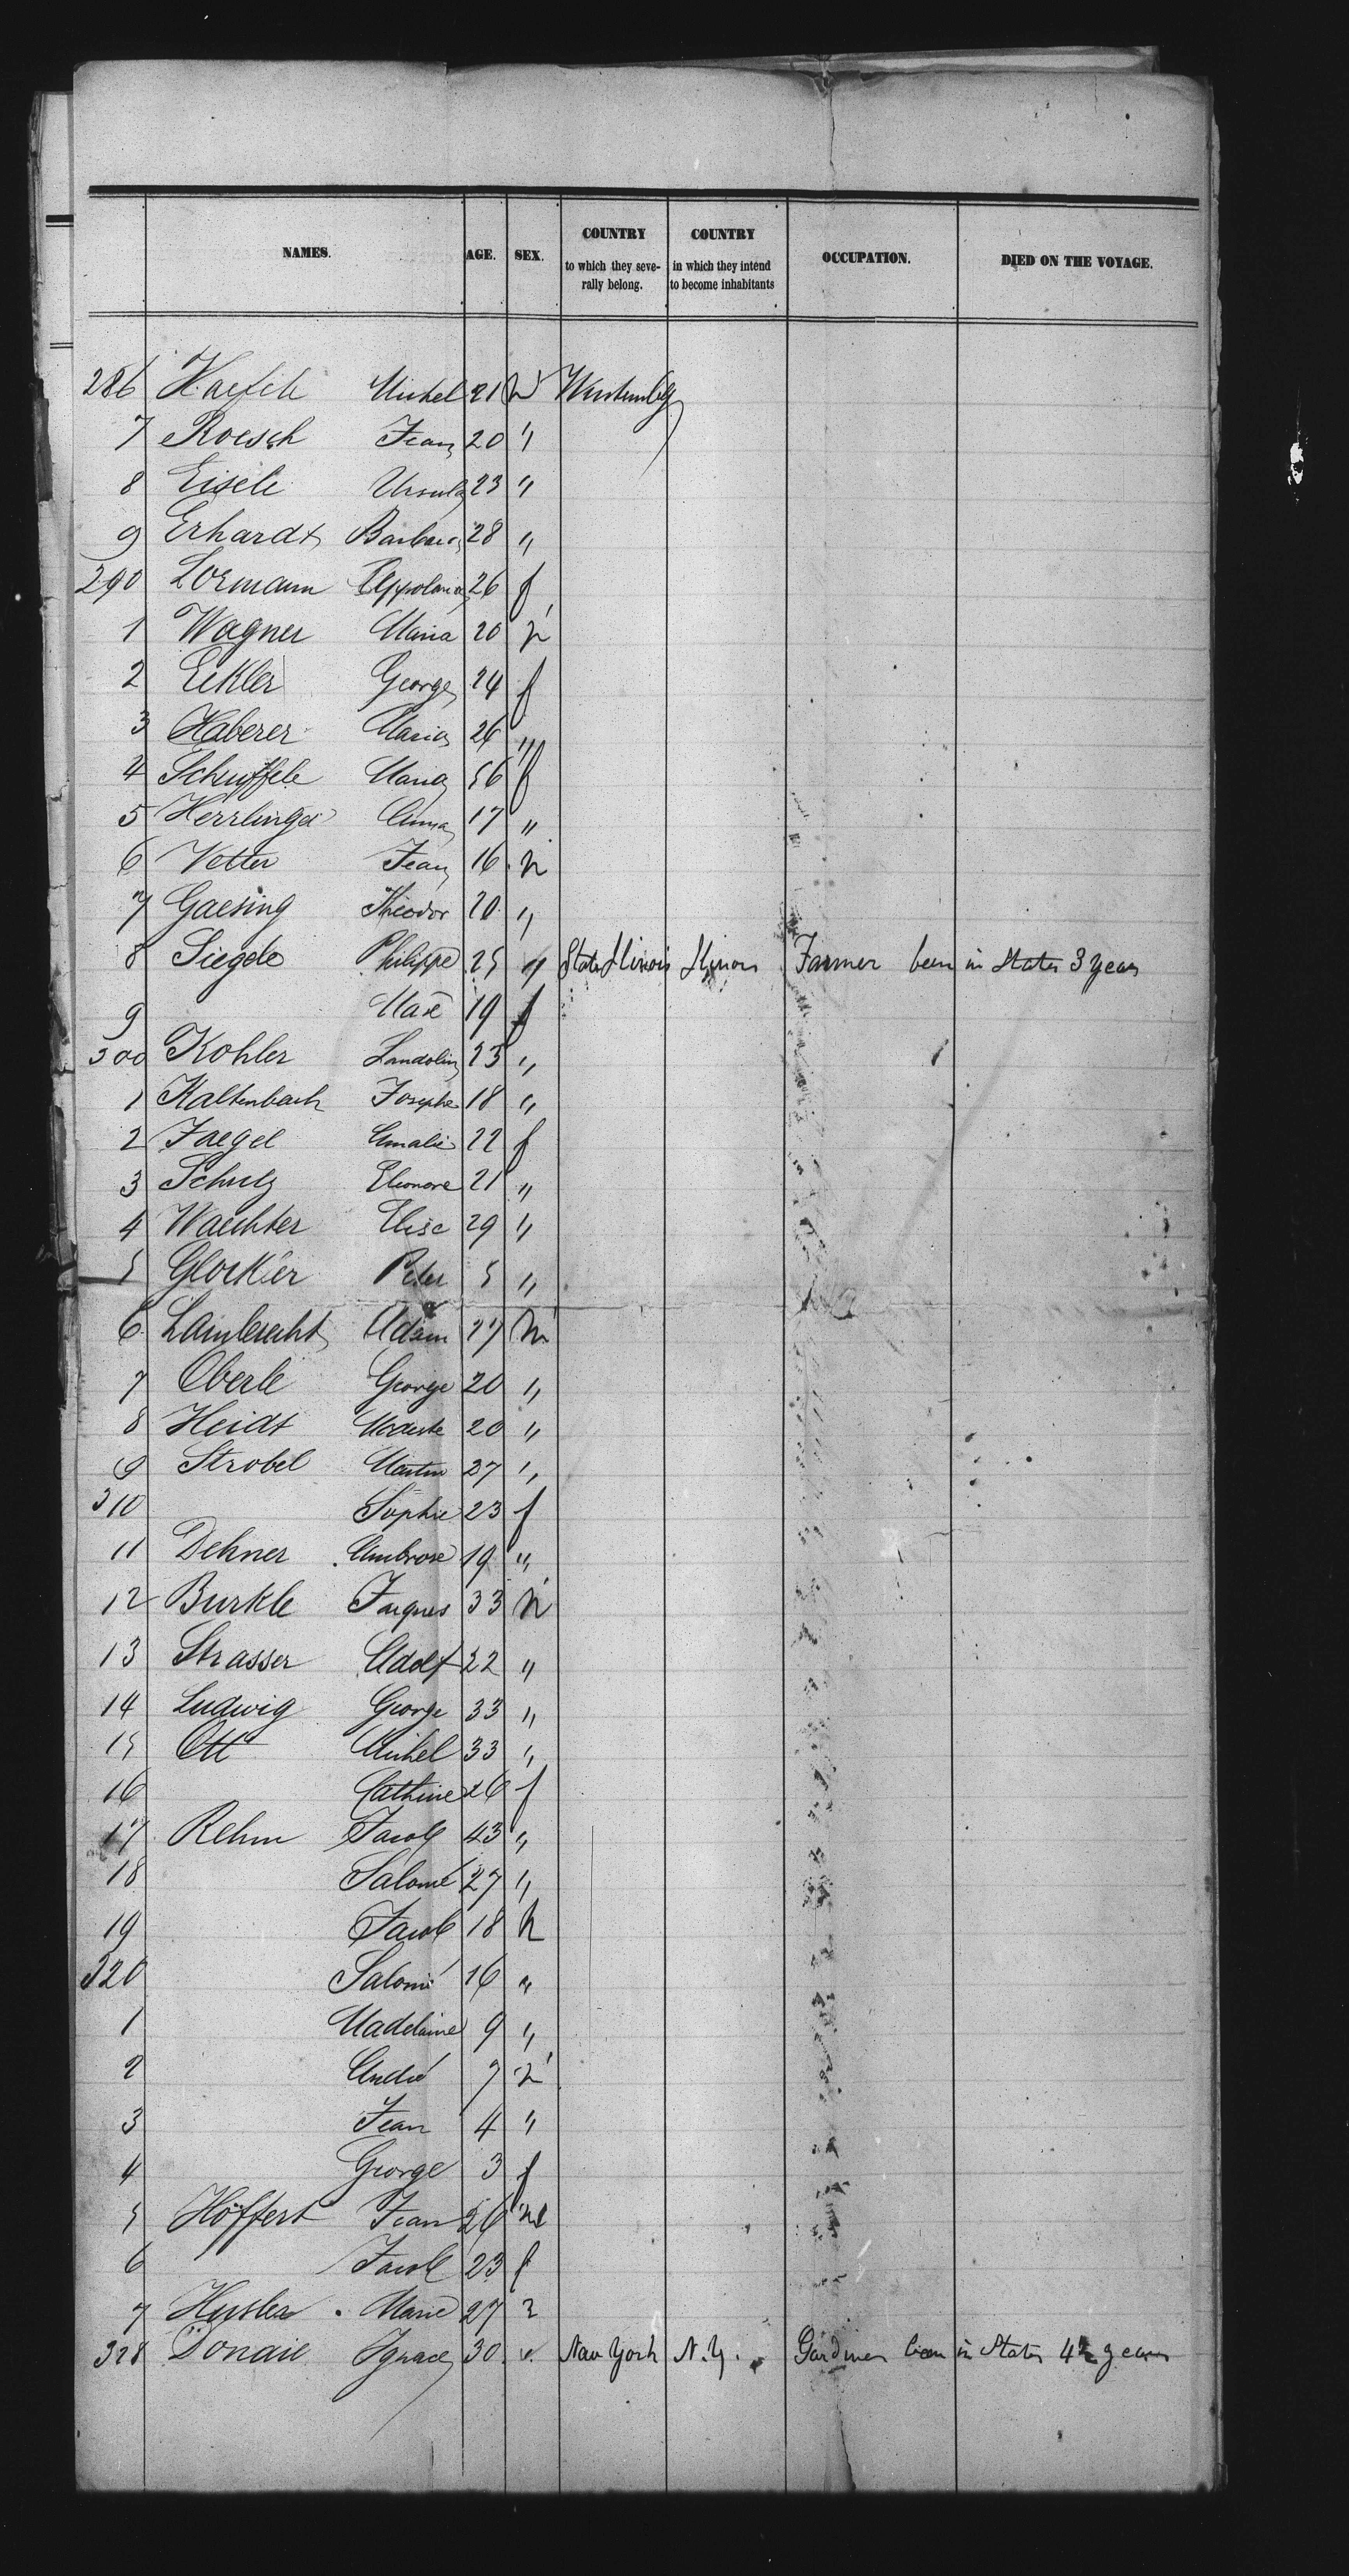 NAMES. AGE. SEX. COUNTRY to which they severally belong. COUNTRY in which they intend to become inhabitants OCCUPATION. DIED ON THE VOYAGE.
286 Michel 21 Wurtemberg
7 Roesch Jean 20 "
8 Eisele Ursula 23 "
9 Erhardt Barbara 28 "
290 Lormann Appolonia 26 f
1 Wagner Maria 20 m
2 Eekler George 24 f
3 Haberer Maria 26 "
4 Schuffele Maria 56 f
5 Herrlinger Anna 17 "
6 Vetter Jean 16 m
7 Gaesing Theodor 20 "
8 Siegele Philippe 25 " State Ilinois Ilinois Farmer been in States 3 years
9 Marie 19 f
300 Kohler Landolin 23 "
1 Kaltenbach Josephe 18 "
2 Jaegel Amalie 22 f
3 Schulz Eleonore 21 "
4 Waechter Elise 29 "
5 Glockler Peter 5 "
6 Lambrecht Adam 27 m
7 Oberle George 20 "
8 Heidt Modeste 20 "
9 Strobel Martin 27 "
310 Sophie 23 f
11 Dehner Ambrose 19 "
12 Burkle Jaques 33 m
13 Strasser Adolf 22 "
14 Ludwig George 33 "
15 Ott Michel 33 "
16 Cathrine 26 f
17 Rehm Jacob 43 "
18 Salomé 27 "
19 Jacob 18 m
320 Salomé 16 "
1 Madelaine 9 "
2 André 7 m
3 Jean 4 "
4 George 3 f
5 Höffert Jean 26 m
6 Jacob 23 f
7 Marie 27
328 Ignace 30 New York N.Y. Gardiner been in States 4½ years